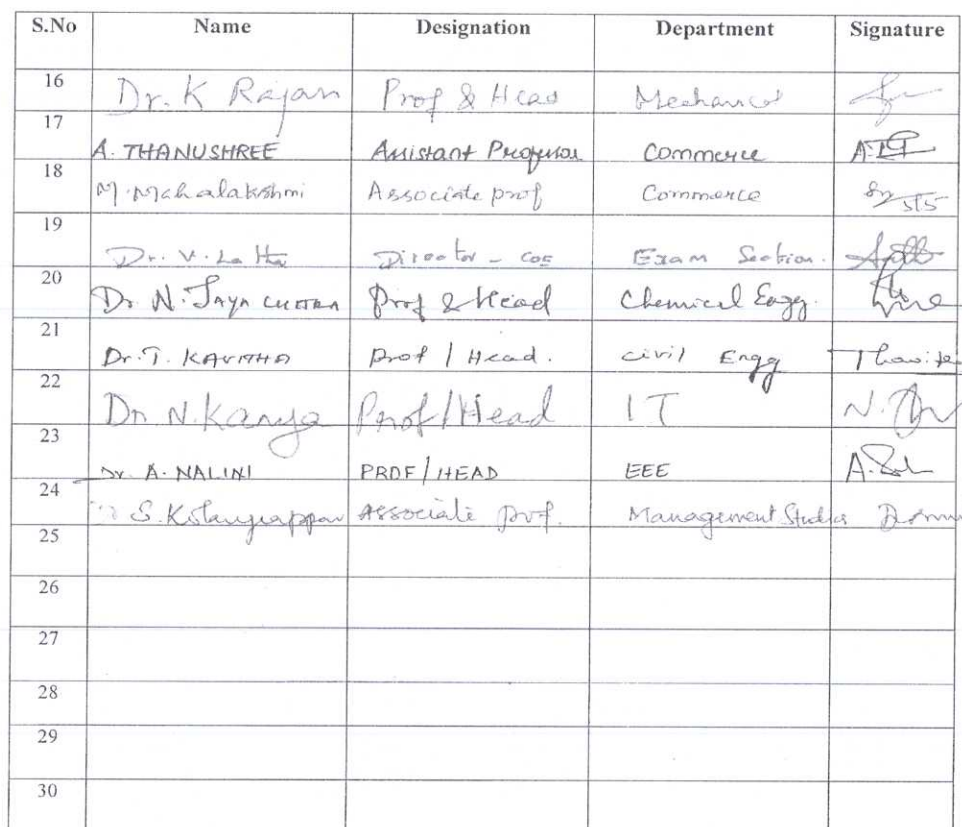 S.No Name Designation Department Signature
16 Dr. K Rajan Prof & Head Mechanical
17 A. THANUSHREE Assistant Professor Commerce
18 M. Mahalakshmi Associate prof Commerce
19 Dr. V. Latha Director - COE Exam Section.
20 Dr N. JAYA CHITRA Prof & Head Chemical Engg.
21 Dr. T. KAVITHA Prof / Head. civil Engg
22 Dr. N. Kanya Prof / Head IT
23 Dr. A. NALINI PROF / HEAD EEE
24 S. Kolanjiappan Associate prof. Management Studies
25
26
27
28
29
30